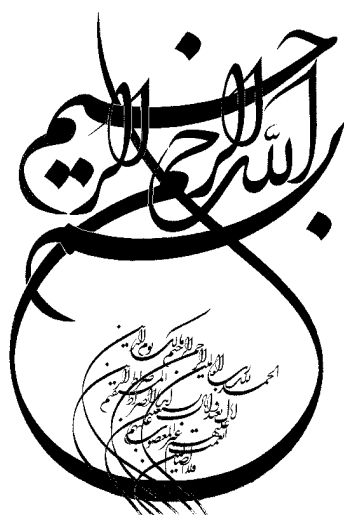 بسم الله الرحمن الرحيم
الحمد لله رب العالمين الرحمن الرحيم مالك يوم الدين
اياك نعبد و اياك نستعين اهدنا الصراط المستقيم
صراط الذين انعمت عليهم غير المغضوب عليهم
و لا الضالين